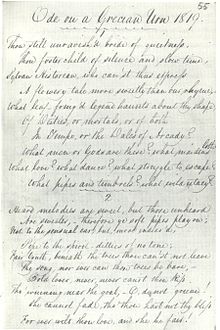 55
Ode on a Grecian Urn 1819.
Thou still unravish'd bride of quietness,
Thou foster child of silence and slow time,
Sylvan Historian, who can'st thus express
A flowery tale more sweetly than our rhyme,
What leaf-fring'd legend haunts about thy shape
Of Deities, or mortals, or of both
In Tempe, or the Dales of Arcady?
What men or Gods are these? what maidens loth
What love? what dance? what struggle to escape?
What pipes and timbrels? what wild extacy?
2
Heard melodies are sweet, but those unheard
Are sweeter, therefore ye soft pipes play on;
Not to the sensual ear, but more endear'd
Pipe to the spirit ditties of no tone;
Fair Youth, beneath the trees thou can'st not leave
Thy song, nor ever can those trees be bare,
Bold lover, never, never can'st thou kiss
Tho' winning near the goal - O do not grieve
She cannot fade, tho' thou hast not thy bliss
For ever wilt thou love, and she be fair!